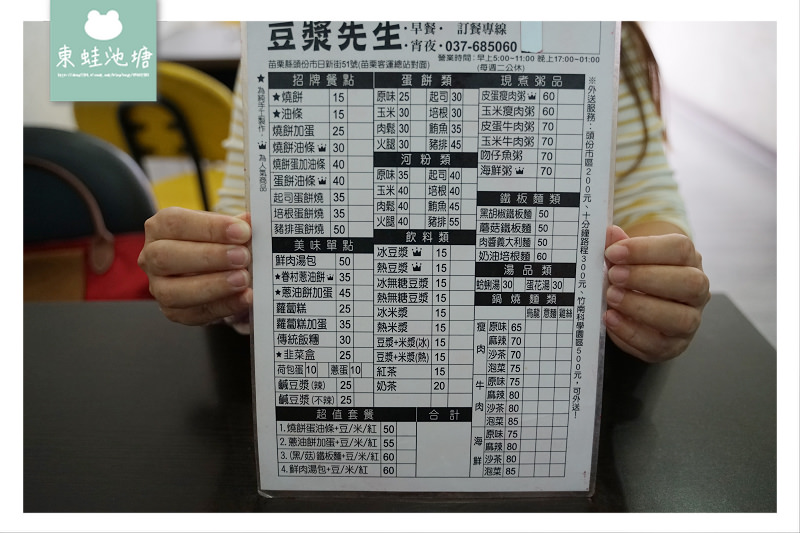 東蛙池塘
豆漿先生
·早餐· 訂餐專線
·宵夜·037-685060
苗栗縣頭份市日新街51號(苗栗客運總站對面)
營業時間:早上5:00~11:00 晚上17:00~01:00
(每週二公休)
★為純手工製作,♛為人氣商品
招牌餐點
★燒餅 15
★油條 15
燒餅加蛋 25
燒餅油條♛ 30
燒餅蛋加油條 40
蛋餅油條♛ 40
起司蛋餅燒 35
培根蛋餅燒 35
豬排蛋餅燒 50
美味單點
鮮肉湯包 50
★眷村蔥油餅♛ 35
★蔥油餅加蛋 45
蘿蔔糕 25
蘿蔔糕加蛋 35
傳統飯糰 30
★韭菜盒 25
荷包蛋 10 蔥蛋 10
鹹豆漿(辣) 25
鹹豆漿(不辣) 25
蛋餅類
原味 25 起司 30
玉米 30 培根 30
肉鬆 30 鮪魚 35
火腿 30 豬排 45
河粉類
原味 35 起司 40
玉米 40 培根 40
肉鬆 40 鮪魚 45
火腿 40 豬排 55
飲料類
冰豆漿♛ 15
熱豆漿♛ 15
冰無糖豆漿 15
熱無糖豆漿 15
冰米漿 15
熱米漿 15
豆漿+米漿(冰) 15
豆漿+米漿(熱) 15
紅茶 15
奶茶 20
現煮粥品
皮蛋瘦肉粥♛ 60
玉米瘦肉粥 60
皮蛋牛肉粥 70
玉米牛肉粥 70
吻仔魚粥 70
海鮮粥♛ 70
鐵板麵類
黑胡椒鐵板麵 50
蘑菇鐵板麵 50
肉醬義大利麵 50
奶油培根麵 60
湯品類
蛤蜊湯 30 蛋花湯 30
鍋燒麵類
烏龍 意麵 雞絲
瘦肉
原味 65
麻辣 70
沙茶 70
泡菜 75
牛肉
原味 75
麻辣 80
沙茶 80
泡菜 85
海鮮
原味 75
麻辣 80
沙茶 80
泡菜 85
超值套餐 合計
1.燒餅蛋油條+豆/米/紅 50
2.蔥油餅加蛋+豆/米/紅 55
3.(黑/菇)鐵板麵+豆/米/紅 60
4.鮮肉湯包+豆/米/紅 60
※外送服務:頭份市區200元、十分鐘路程300元、竹南科學園區500元,可外送!